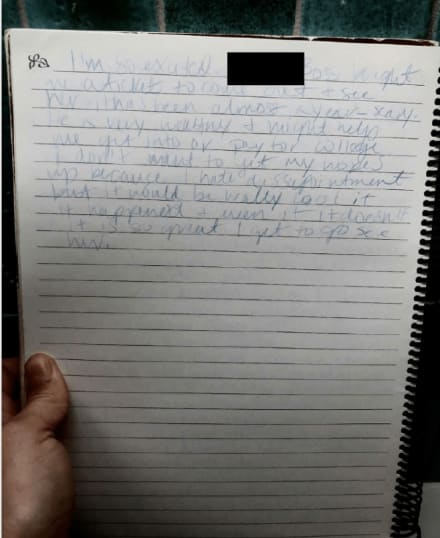 I'm so excited boss bought
me a ticket to come out + see
her. It has been almost a year - xary.
He is very wealthy + might help
me get into or pay for college.
I don't want to get my hopes
up because I hate disappointment
but it would be really cool if
it happened + even if it doesn't
it is so great I get to go see
her.